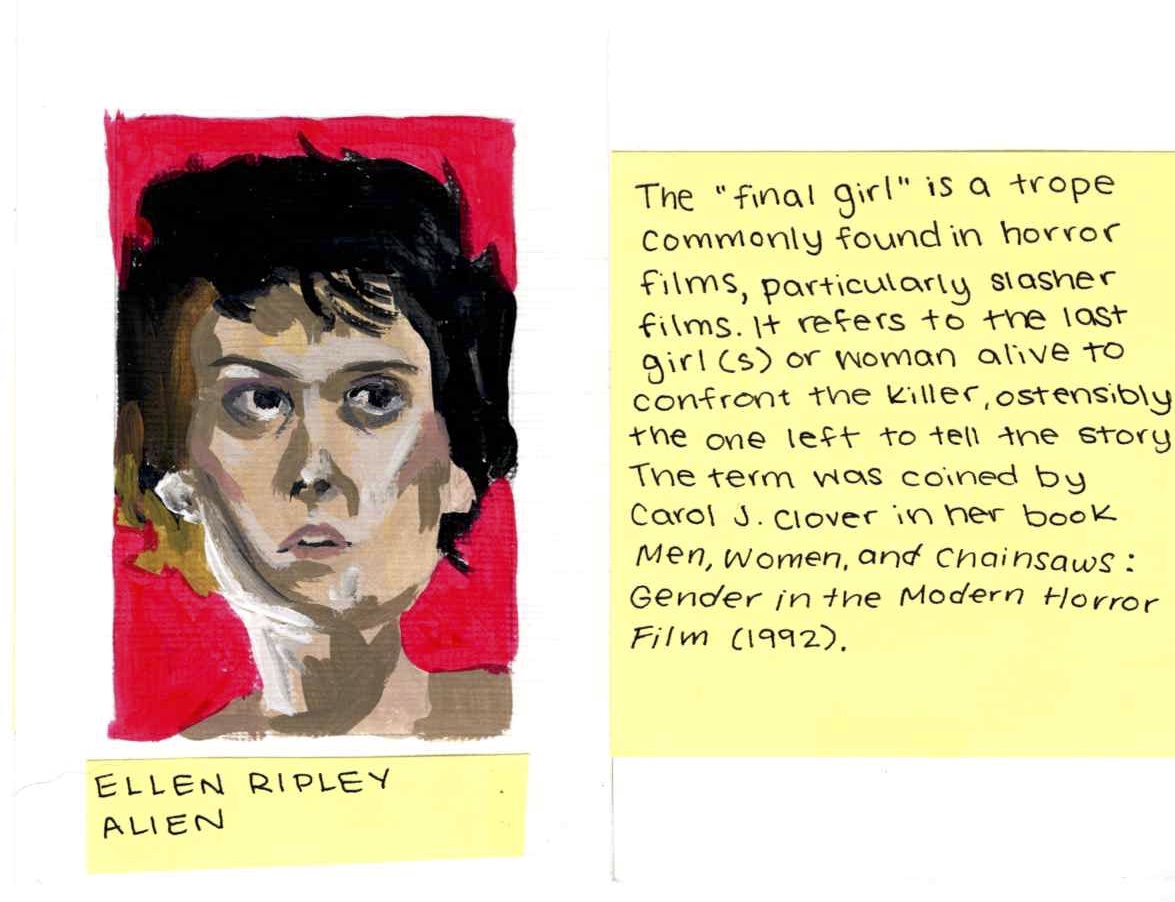 The "final girl" is a trope
commonly found in horror
films, particularly slasher
films. It refers to the last
girl(s) or woman alive to
confront the killer, ostensibly
the one left to tell the story
The term was coined by
Carol J. Clover in her book
Men, Women, and Chainsaws:
Gender in the Modern Horror
Film (1992).
ELLEN RIPLEY
ALIEN